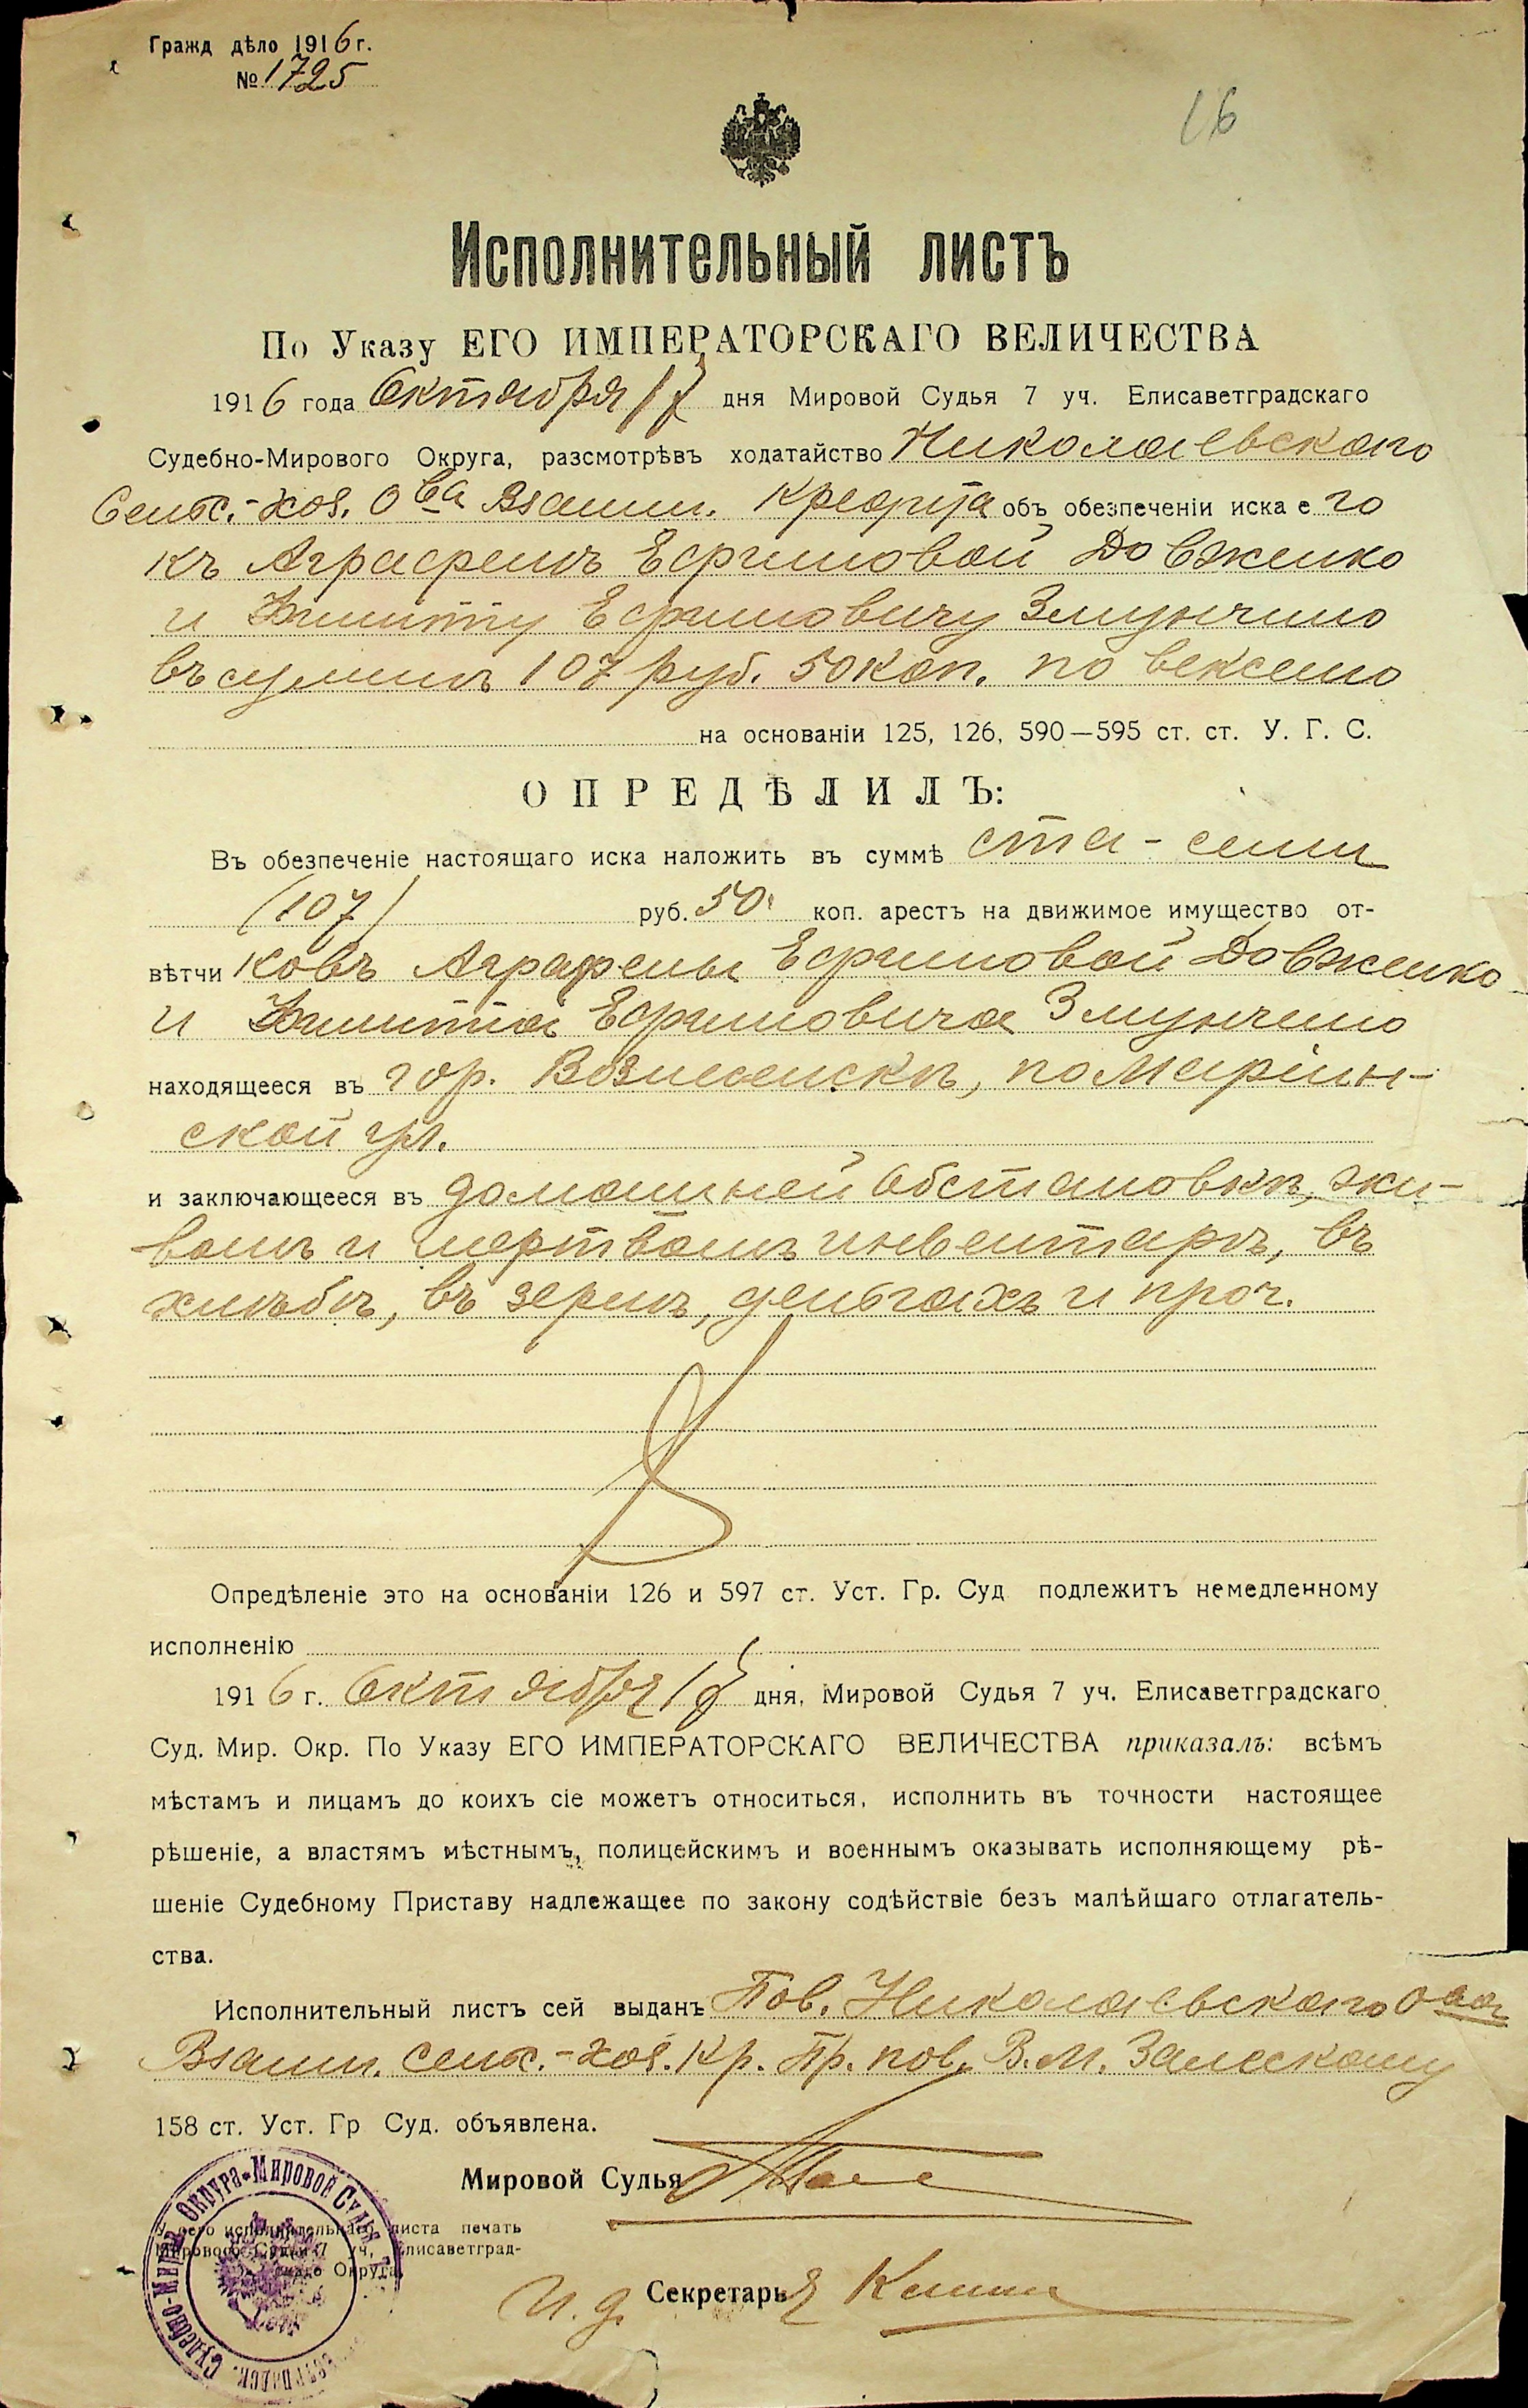 Гражд дѣло 1916 г.
№ 1725
16
Исполнительный листъ
По Указу ЕГО ИМПЕРАТОРСКАГО ВЕЛИЧЕСТВА
1916 года Октября 17 дня Мировой Судья 7 уч. Елисаветградскаго
Судебно-Мирового Округа, разсмотрѣвъ ходатайство Николаевскаго
Сельс.-хоз. О-ва Взаимн. Кредита объ обезпеченіи иска его
къ Аграфенѣ Ефимовой Довженко
и Ефимовичу
въ суммѣ 107 руб. 50 коп. по векселю
на основаніи 125, 126, 590—595 ст. ст. У. Г. С.
ОПРЕДѢЛИЛЪ:
Въ обезпеченіе настоящаго иска наложить въ суммѣ ста-семи
(107) руб. 50 коп. арестъ на движимое имущество от-
вѣтчиковъ Аграфены Ефимовой Довженко
и Ефимовича
находящееся въ гор. Вознесенскѣ, по Маріин-
ской ул.
и заключающееся въ домашней обстановкѣ, жи-
вомъ и мертвомъ инвентарѣ, въ
хлѣбѣ, въ зернѣ, деньгахъ и проч.
Опредѣленіе это на основаніи 126 и 597 ст. Уст. Гр. Суд подлежитъ немедленному
исполненію
1916 г. Октября 17 дня, Мировой Судья 7 уч. Елисаветградскаго
Суд. Мир. Окр. По Указу ЕГО ИМПЕРАТОРСКАГО ВЕЛИЧЕСТВА приказалъ: всѣмъ
мѣстамъ и лицамъ до коихъ сіе можетъ относиться, исполнить въ точности настоящее
рѣшеніе, а властямъ мѣстнымъ, полицейскимъ и военнымъ оказывать исполняющему рѣ-
шеніе Судебному Приставу надлежащее по закону содѣйствіе безъ малѣйшаго отлагатель-
ства.
Исполнительный листъ сей выданъ Пов. Николаевскаго О-ва
Взаимн. сельс.-хоз. Кр. Пр. пов. В. М. Залескому
158 ст. Уст. Гр Суд. объявлена.
Мировой Судья
У сего исполнительнаго листа печать
Мирового Судьи 7 уч, Елисаветград-
скаго Округа.
И. д. Секретарь